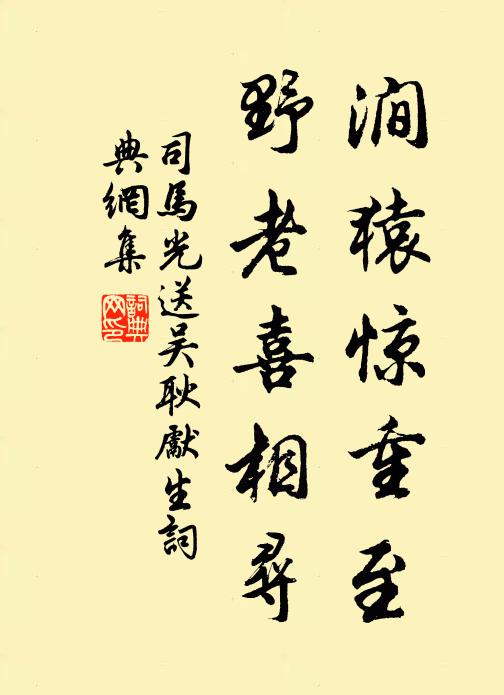 澗猿惊重至
野老喜相尋
司馬光送吴耿獻生詞
典網集
詞典网印